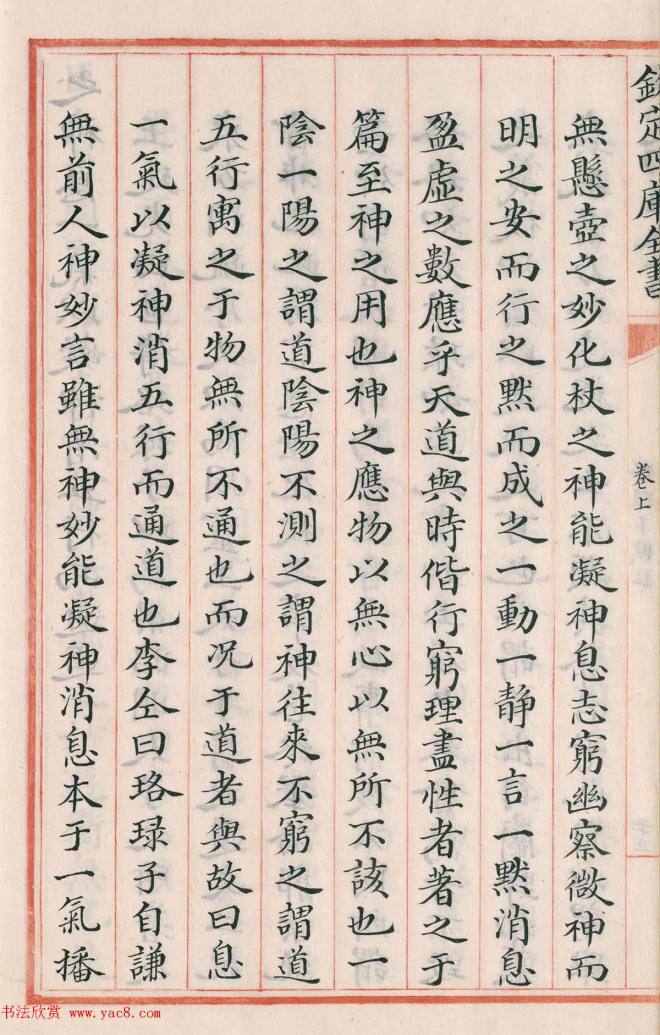 欽定四庫全書
卷上
無懸壺之妙化杖之神能凝神息志窮幽察微神而
明之安而行之默而成之一動一静一言一默消息
盈虛之數應乎天道與時偕行窮理盡性者著之于
篇至神之用也神之應物以無心以無所不該也一
陰一陽之謂道陰陽不測之謂神往來不窮之謂道
五行寓之于物無所不通也而况于道者與故曰息
一氣以凝神消五行而通道也李仝曰珞琭子自謙
無前人神妙言雖無神妙能凝神消息本于一氣播
书法欣赏 www.yac8.com